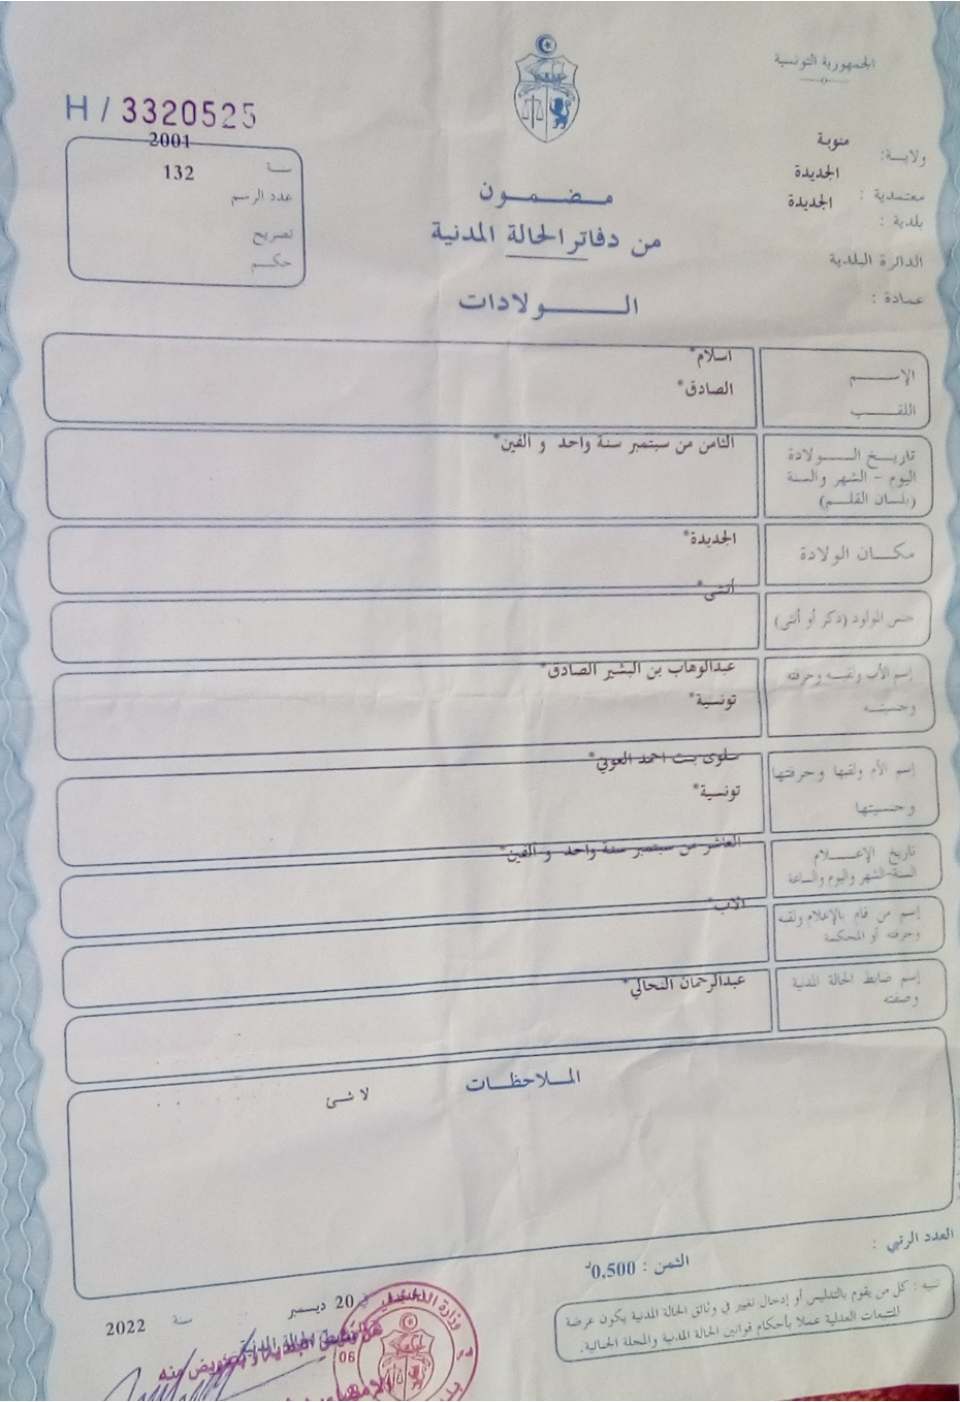 الجمهورية التونسية
H / 3320525
ولاية: منوبة
معتمدية : الجديدة
بلدية : الجديدة
الدائرة البلدية
عمادة :
سنة 2001
عدد الرسم 132
تصريح
حكم
مضمون
من دفاتر الحالة المدنية
الولادات
الإسم اسلام*
اللقب الصادق*
تاريخ الولادة الثامن من سبتمبر سنة واحد و الفين*
اليوم - الشهر والسنة
(بلسان القلم)
مكان الولادة الجديدة*
جنس المولود (ذكر أو أنثى) أنثى*
إسم الأب ولقبه وحرفته عبدالوهاب بن البشير الصادق*
وجنسيته تونسية*
إسم الأم ولقبها وحرفتها سلوى بنت احمد العوني*
وجنسيتها تونسية*
تاريخ الإعلام العاشر من سبتمبر سنة واحد و الفين*
السنة-الشهر واليوم والساعة
إسم من قام بالإعلام ولقبه الاب*
وحرفته أو المحكمة
إسم ضابط الحالة المدنية عبدالرحمان النحالي*
وصفته
الملاحظات
لا شئ
العدد الرتبي :
الثمن : 0,500د
تنبيه : كل من يقوم بالتدليس أو إدخال تغيير في وثائق الحالة المدنية يكون عرضة
للتتبعات العدلية عملا بأحكام قوانين الحالة المدنية والمجلة الجنائية.
20 ديسمبر سنة 2022
ضابط الحالة المدنية
وبتفويض منه
وزارة
06